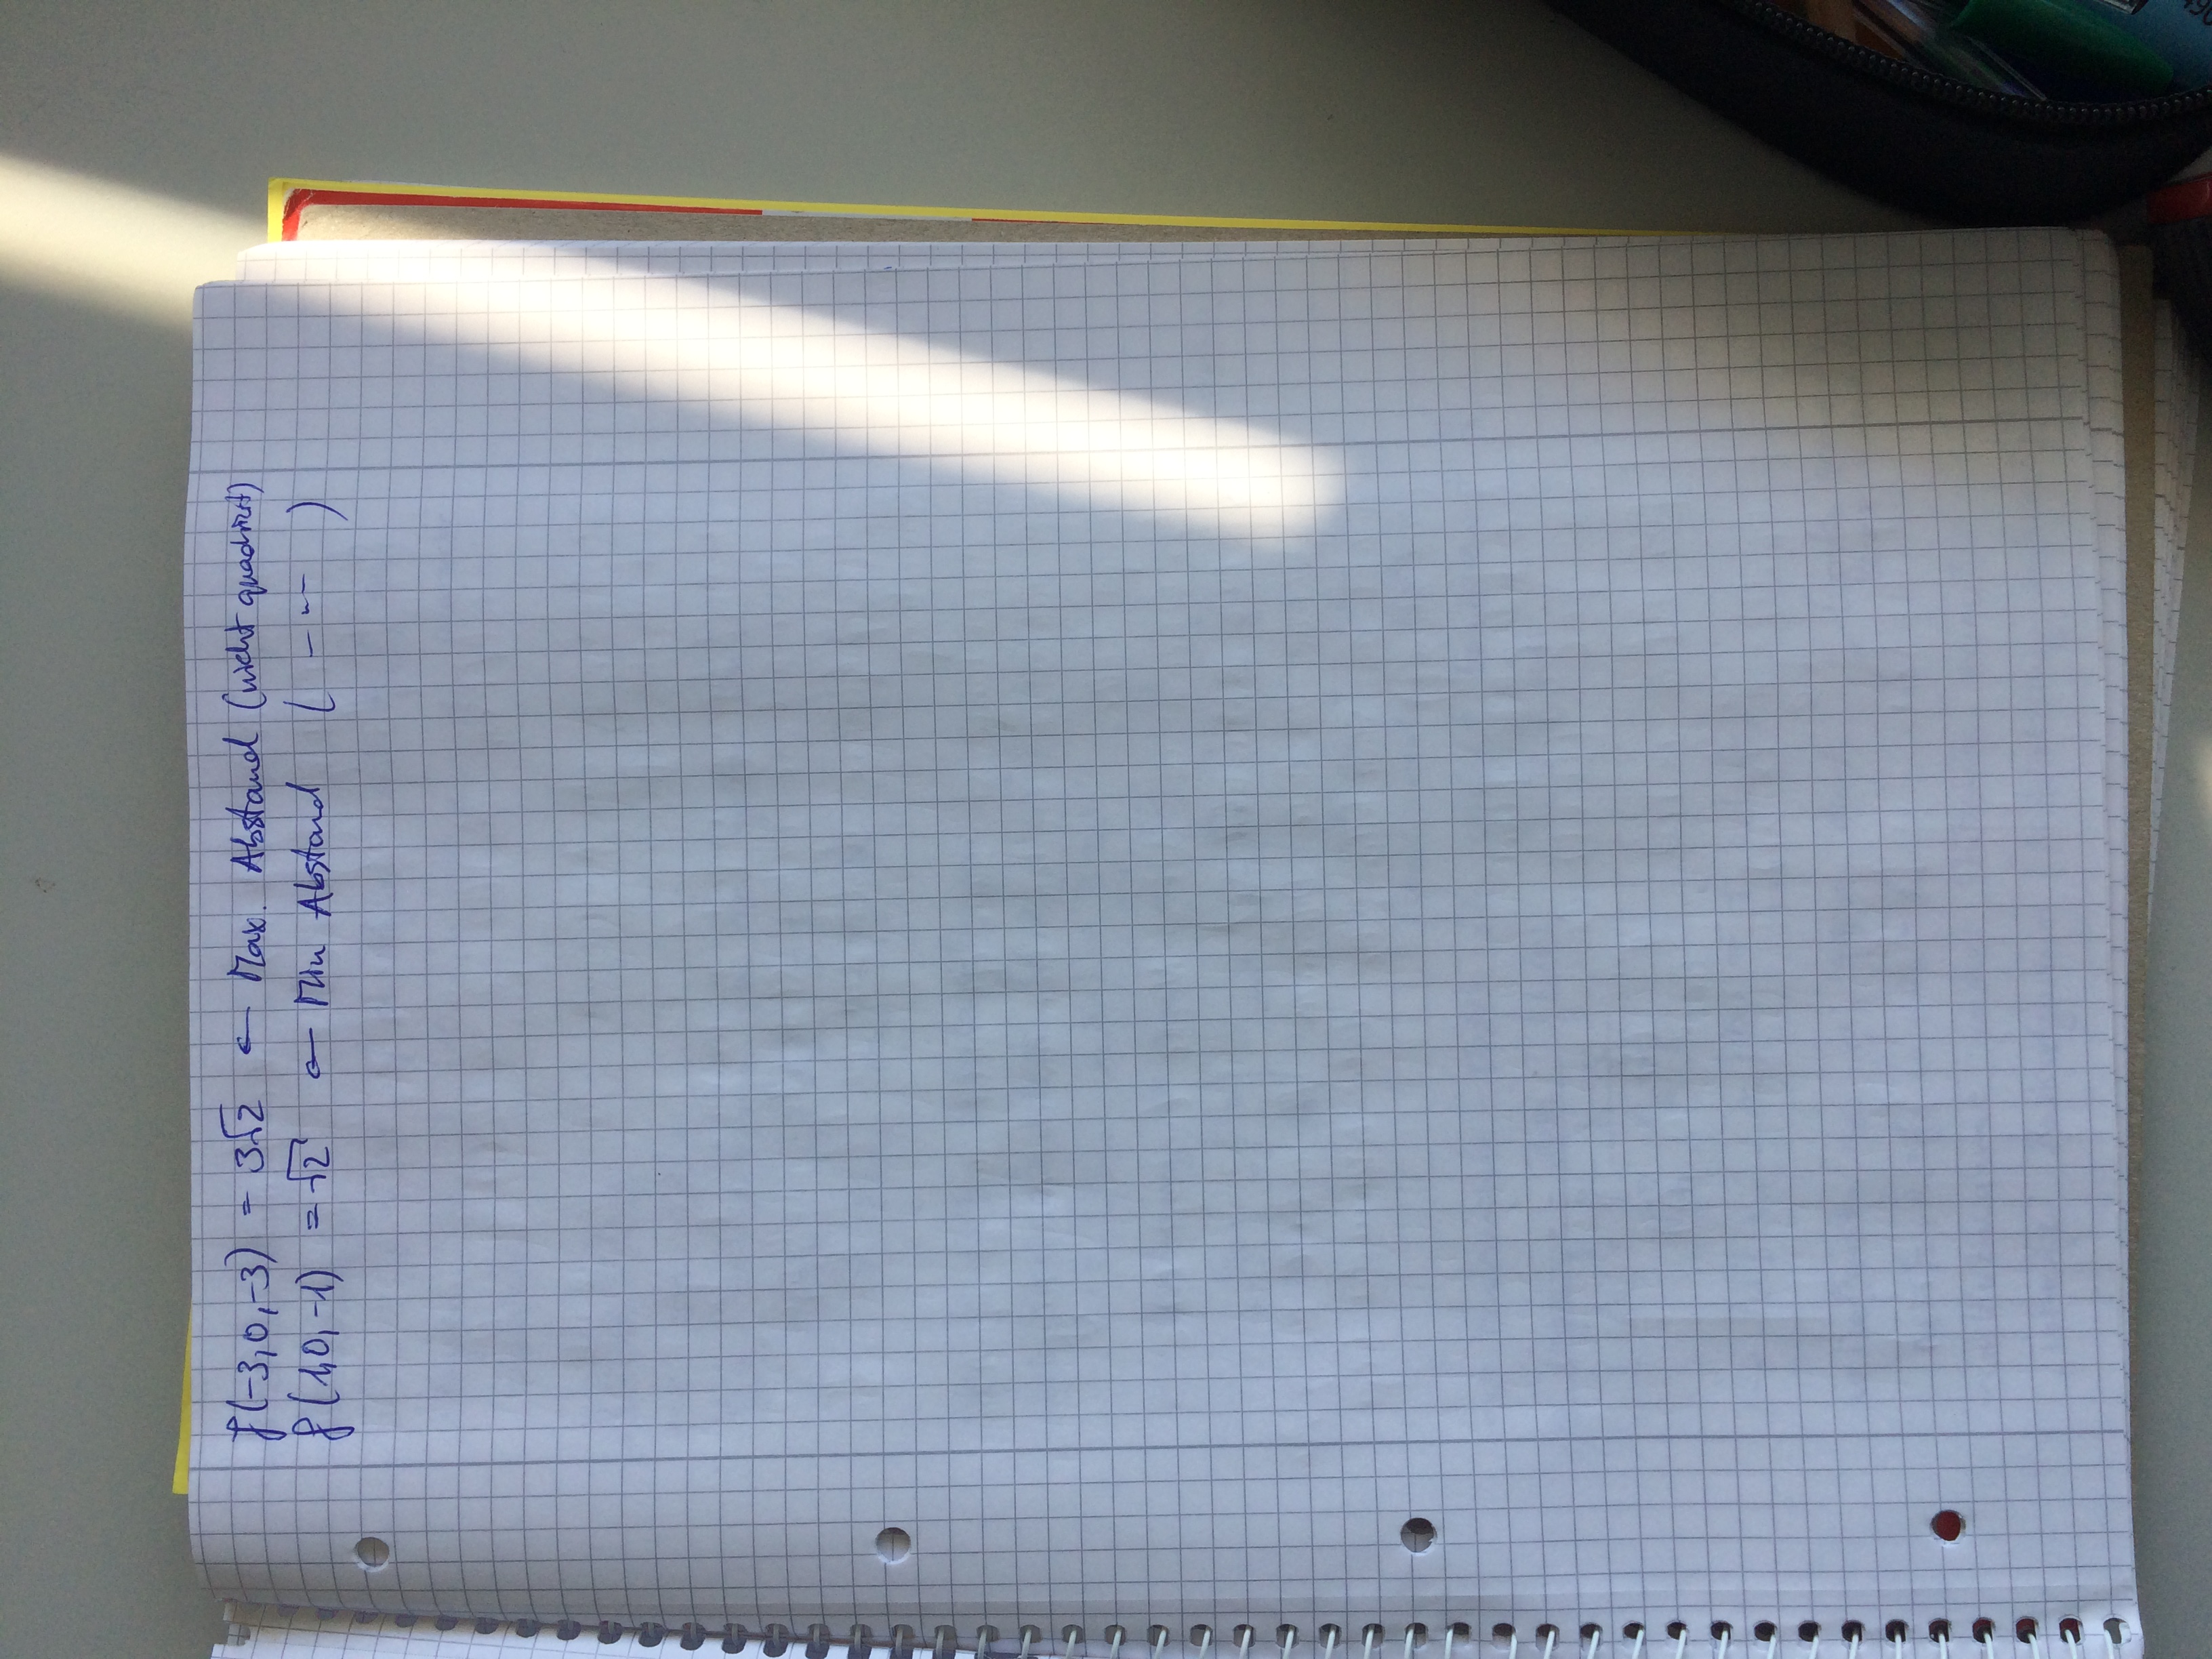 f(-3,0,-3) = 3√2 ← Max. Abstand (nicht quadriert)
f(1,0,-1) = √2 ← Min Abstand ( -"- )